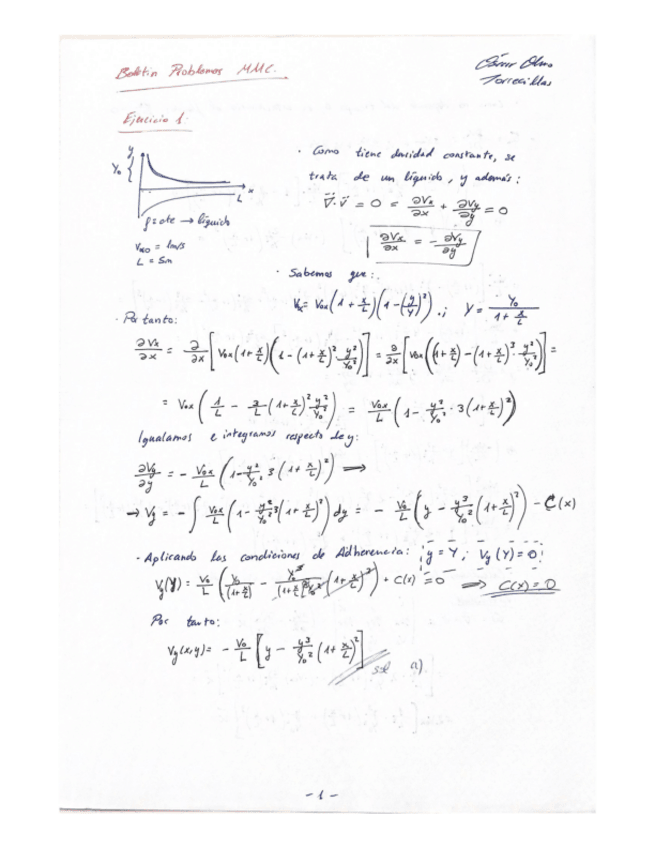 Boletín Problemas MMC.
César Olmo
Torrecillas
Ejercicio 1:
y
Y₀
x
L
ρ = cte → líquido
Vxo = 1m/s
L = 5m
· Como tiene densidad constante, se
trata de un líquido, y además:
∇·v = 0 = ∂Vx/∂x + ∂Vy/∂y = 0
∂Vx/∂x = - ∂Vy/∂y
· Sabemos que:
Vx = V₀x (1 + x/L)(1 - (y/Y)²) ; Y = Y₀/(1 + x/L)
· Por tanto:
∂Vx/∂x = ∂/∂x [V₀x (1+x/L)(1 - (1+x/L)² y²/Y₀²)] = ∂/∂x [V₀x ((1+x/L) - (1+x/L)³ y²/Y₀²)] =
= V₀x (1/L - 3/L (1+x/L)² y²/Y₀²) = V₀x/L (1 - y²/Y₀² · 3(1+x/L)²)
Igualamos e integramos respecto de y:
∂Vy/∂y = - V₀x/L (1 - y²/Y₀² 3(1+x/L)²) ⟹
→ Vy = - ∫ V₀x/L (1 - y²/Y₀² 3(1+x/L)²) dy = - V₀/L (y - y³/Y₀² (1+x/L)²) - C(x)
· Aplicando las condiciones de Adherencia: y = Y ; Vy(Y) = 0
+ C(x) = 0 ⟹ C(x) = 0
Por tanto:
Vy(x,y) = - V₀/L [y - y³/Y₀² (1+x/L)²]
sol a)
- 1 -